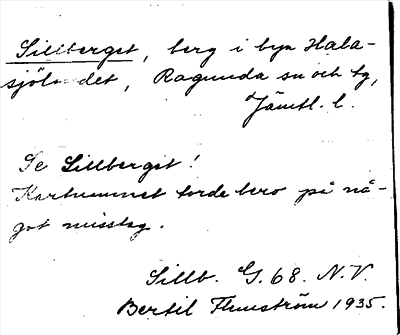 Sillberget, berg i byn Hala-
sjölandet, Ragunda sn och tg,
Jämtl. l.
Se Lillberget!
Kartnamnet torde bero på nå-
got misstag.
Sillb. G. 68. N.V.
Bertil Flemström 1935.